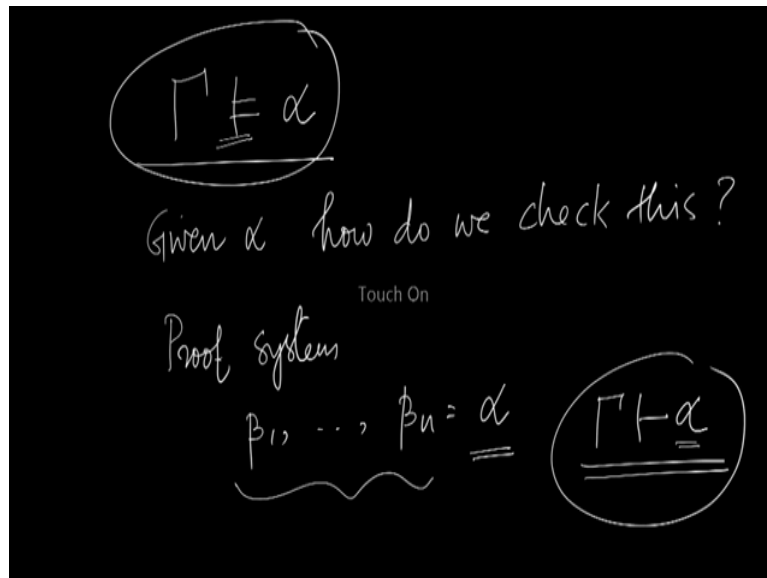 Γ ⊨ α
Given α how do we check this?
Touch On
Proof system
β₁, ..., βₙ = α Γ ⊢ α